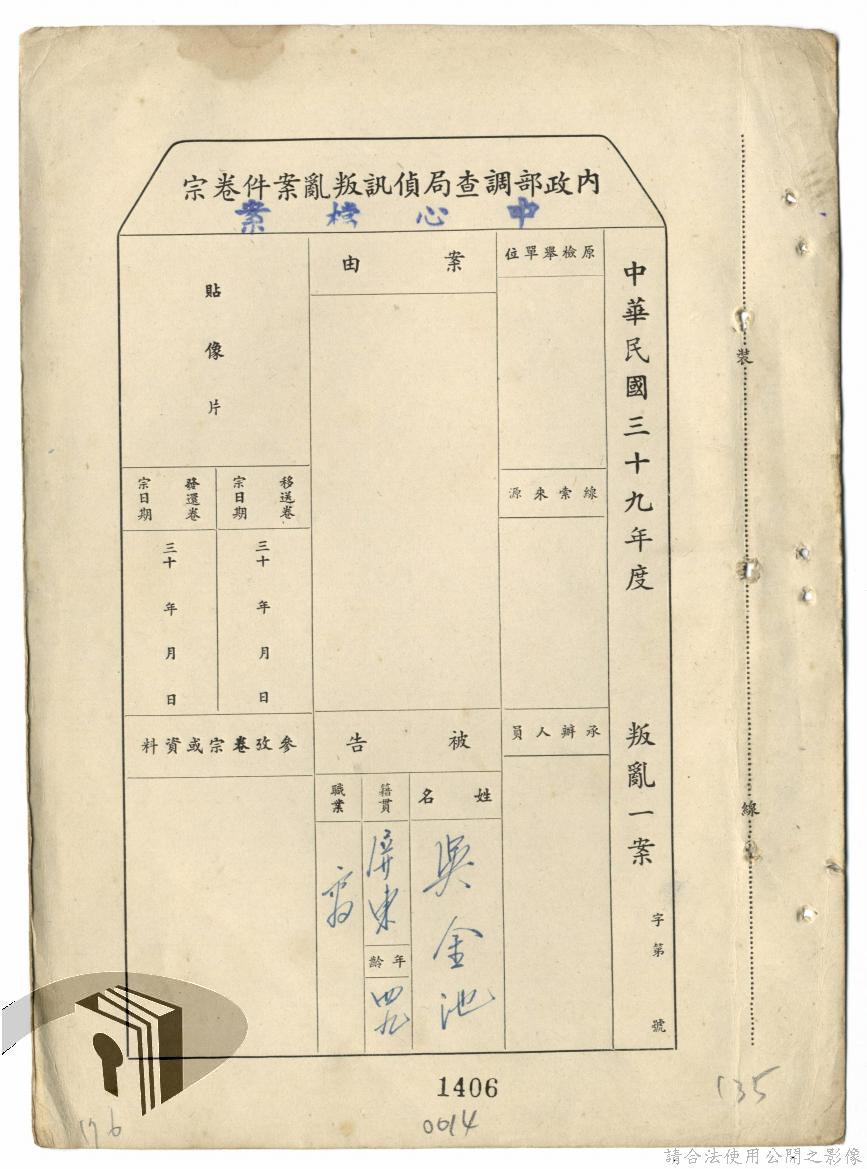 內政部調查局偵訊叛亂案件卷宗
中心檔案
中華民國三十九年度 叛亂一案 字第 號
原檢舉單位
線索來源
承辦人員
案由
被告
姓名
吳金池
籍貫
屏東
年齡
四九
職業
貼像片
移送卷宗日期
三十 年 月 日
發還卷宗日期
三十 年 月 日
參攷卷宗或資料
裝
線
1406
0614
135
176
請合法使用公開之影像